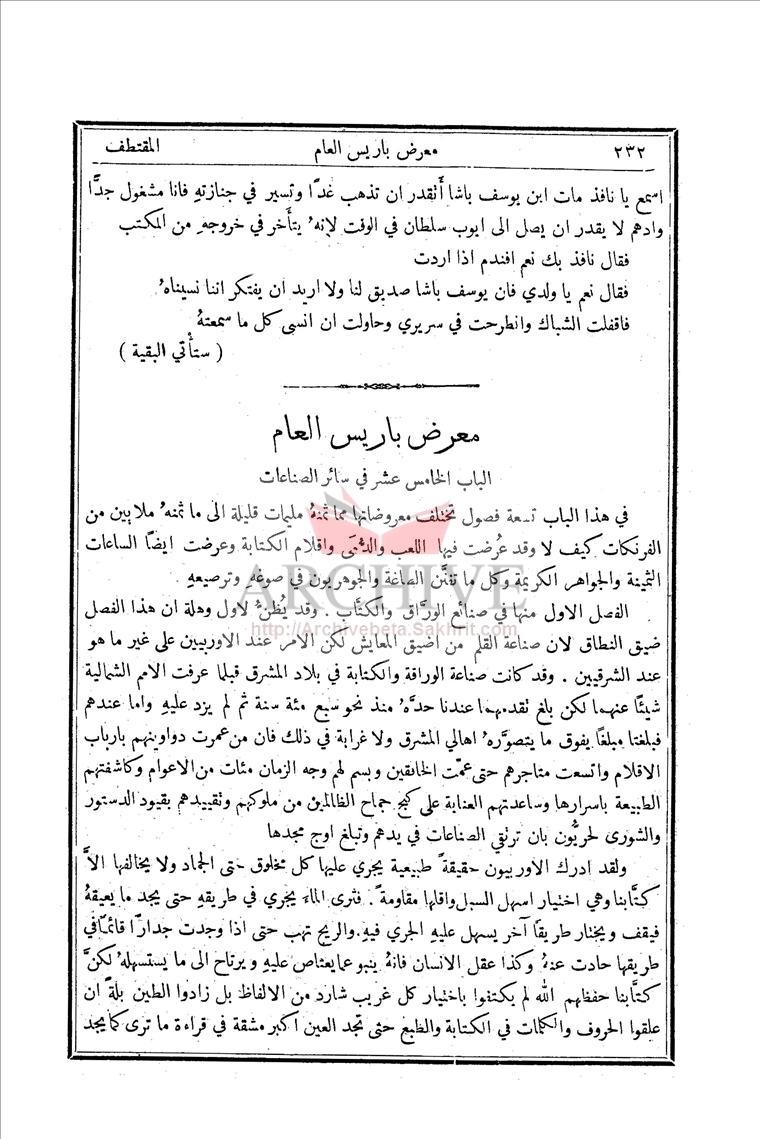 ٢٣٢ معرض باريس العام المقتطف
اسمع يا نافذ مات ابن يوسف باشا أتقدر ان تذهب غدًا وتسير في جنازتهِ فانا مشغول جدًّا
وادهم لا يقدر ان يصل الى ايوب سلطان في الوقت لانهُ يتأخر في خروجهِ من المكتب
فقال نافذ بك نعم افندم اذا اردت
فقال نعم يا ولدي فان يوسف باشا صديق لنا ولا اريد ان يفتكر اننا نسيناهُ
فاقفلت الشباك وانطرحت في سريري وحاولت ان انسى كل ما سمعتهُ
( ستأتي البقية )
معرض باريس العام
الباب الخامس عشر في سائر الصناعات
في هذا الباب تسعة فصول تختلف معروضاتها مما ثمنهُ مليمات قليلة الى ما ثمنهُ ملايين من
الفرنكات كيف لا وقد عُرضت فيها اللعب والدُّمَى واقلام الكتابة وعرضت ايضًا الساعات
الثمينة والجواهر الكريمة وكل ما تفنَّن الصاغة والجوهريون في صوغهِ وترصيعهِ
ARCHIVE
http://Archivebeta.Sakhrit.com
الفصل الاول منها في صنائع الوراق والكتَّاب . وقد يُظنُّ لاول وهلة ان هذا الفصل
ضيق النطاق لان صناعة القلم من اضيق المعايش لكن الامر عند الاوربيين على غير ما هو
عند الشرقيين . وقد كانت صناعة الوراقة والكتابة في بلاد المشرق قبلما عرفت الامم الشمالية
شيئًا عنهما لكن بلغ تقدمهما عندنا حدَّهُ منذ نحو سبع مئة سنة ثم لم يزد عليهِ واما عندهم
فبلغتا مبلغًا يفوق ما يتصوَّرهُ اهالي المشرق ولا غرابة في ذلك فان من عمرت دواوينهم بارباب
الاقلام واتسعت متاجرهم حتى عمّت الخافقين وبسم لهم وجه الزمان مئات من الاعوام وكاشفتهم
الطبيعة باسرارها وساعدتهم العناية على كبح جماح الظالمين من ملوكهم وتقييدهم بقيود الدستور
والشورى لحريُّون بان ترتقي الصناعات في يدهم وتبلغ اوج مجدها
ولقد ادرك الاوربيون حقيقةً طبيعية يجري عليها كل مخلوق حتى الجماد ولا يخالفها الاَّ
كتَّابنا وهي اختيار اسهل السبل واقلها مقاومةً . فترى الماء يجري في طريقهِ حتى يجد ما يعيقهُ
فيقف ويختار طريقًا آخر يسهل عليهِ الجري فيهِ. والريح تهب حتى اذا وجدت جدارًا قائمًا في
طريقها حادت عنهُ وكذا عقل الانسان فانهُ ينبو عما يعتاص عليهِ ويرتاح الى ما يستسهلهُ لكنَّ
كتَّابنا حفظهم الله لم يكتفوا باختيار كل غريب شارد من الالفاظ بل زادوا الطين بلةً ان
علقوا الحروف والكلمات في الكتابة والطبع حتى تجد العين اكبر مشقة في قراءة ما ترى كما يجد